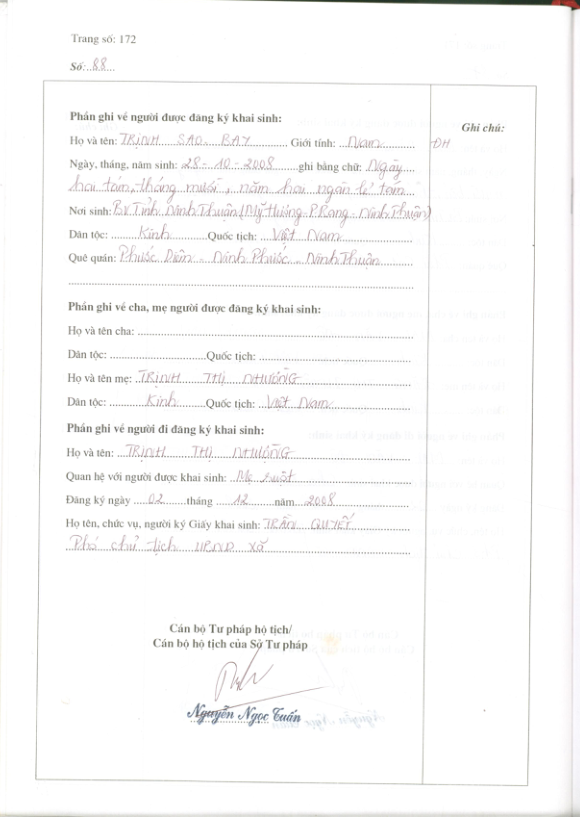 Trang số: 172
Số: 88
Ghi chú:
ĐH
Phần ghi về người được đăng ký khai sinh:
Họ và tên: TRỊNH SAO BAY Giới tính: Nam
Ngày, tháng, năm sinh: 28 - 10 - 2008 ghi bằng chữ: Ngày
hai tám, tháng mười, năm hai ngàn lẻ tám
Nơi sinh: BV Tỉnh Ninh Thuận (Mỹ Hương - P.Rang - Ninh Thuận)
Dân tộc: Kinh Quốc tịch: Việt Nam
Quê quán: Phước Diêm - Ninh Phước - Ninh Thuận
Phần ghi về cha, mẹ người được đăng ký khai sinh:
Họ và tên cha:
Dân tộc: Quốc tịch:
Họ và tên mẹ: TRỊNH THỊ NHUÔNG
Dân tộc: Kinh Quốc tịch: Việt Nam
Phần ghi về người đi đăng ký khai sinh:
Họ và tên: TRỊNH THỊ NHUÔNG
Quan hệ với người được khai sinh: Mẹ ruột
Đăng ký ngày 02 tháng 12 năm 2008
Họ tên, chức vụ, người ký Giấy khai sinh: TRẦN QUYẾT
Phó chủ tịch UBND xã
Cán bộ Tư pháp hộ tịch/
Cán bộ hộ tịch của Sở Tư pháp
Nguyễn Ngọc Tuấn